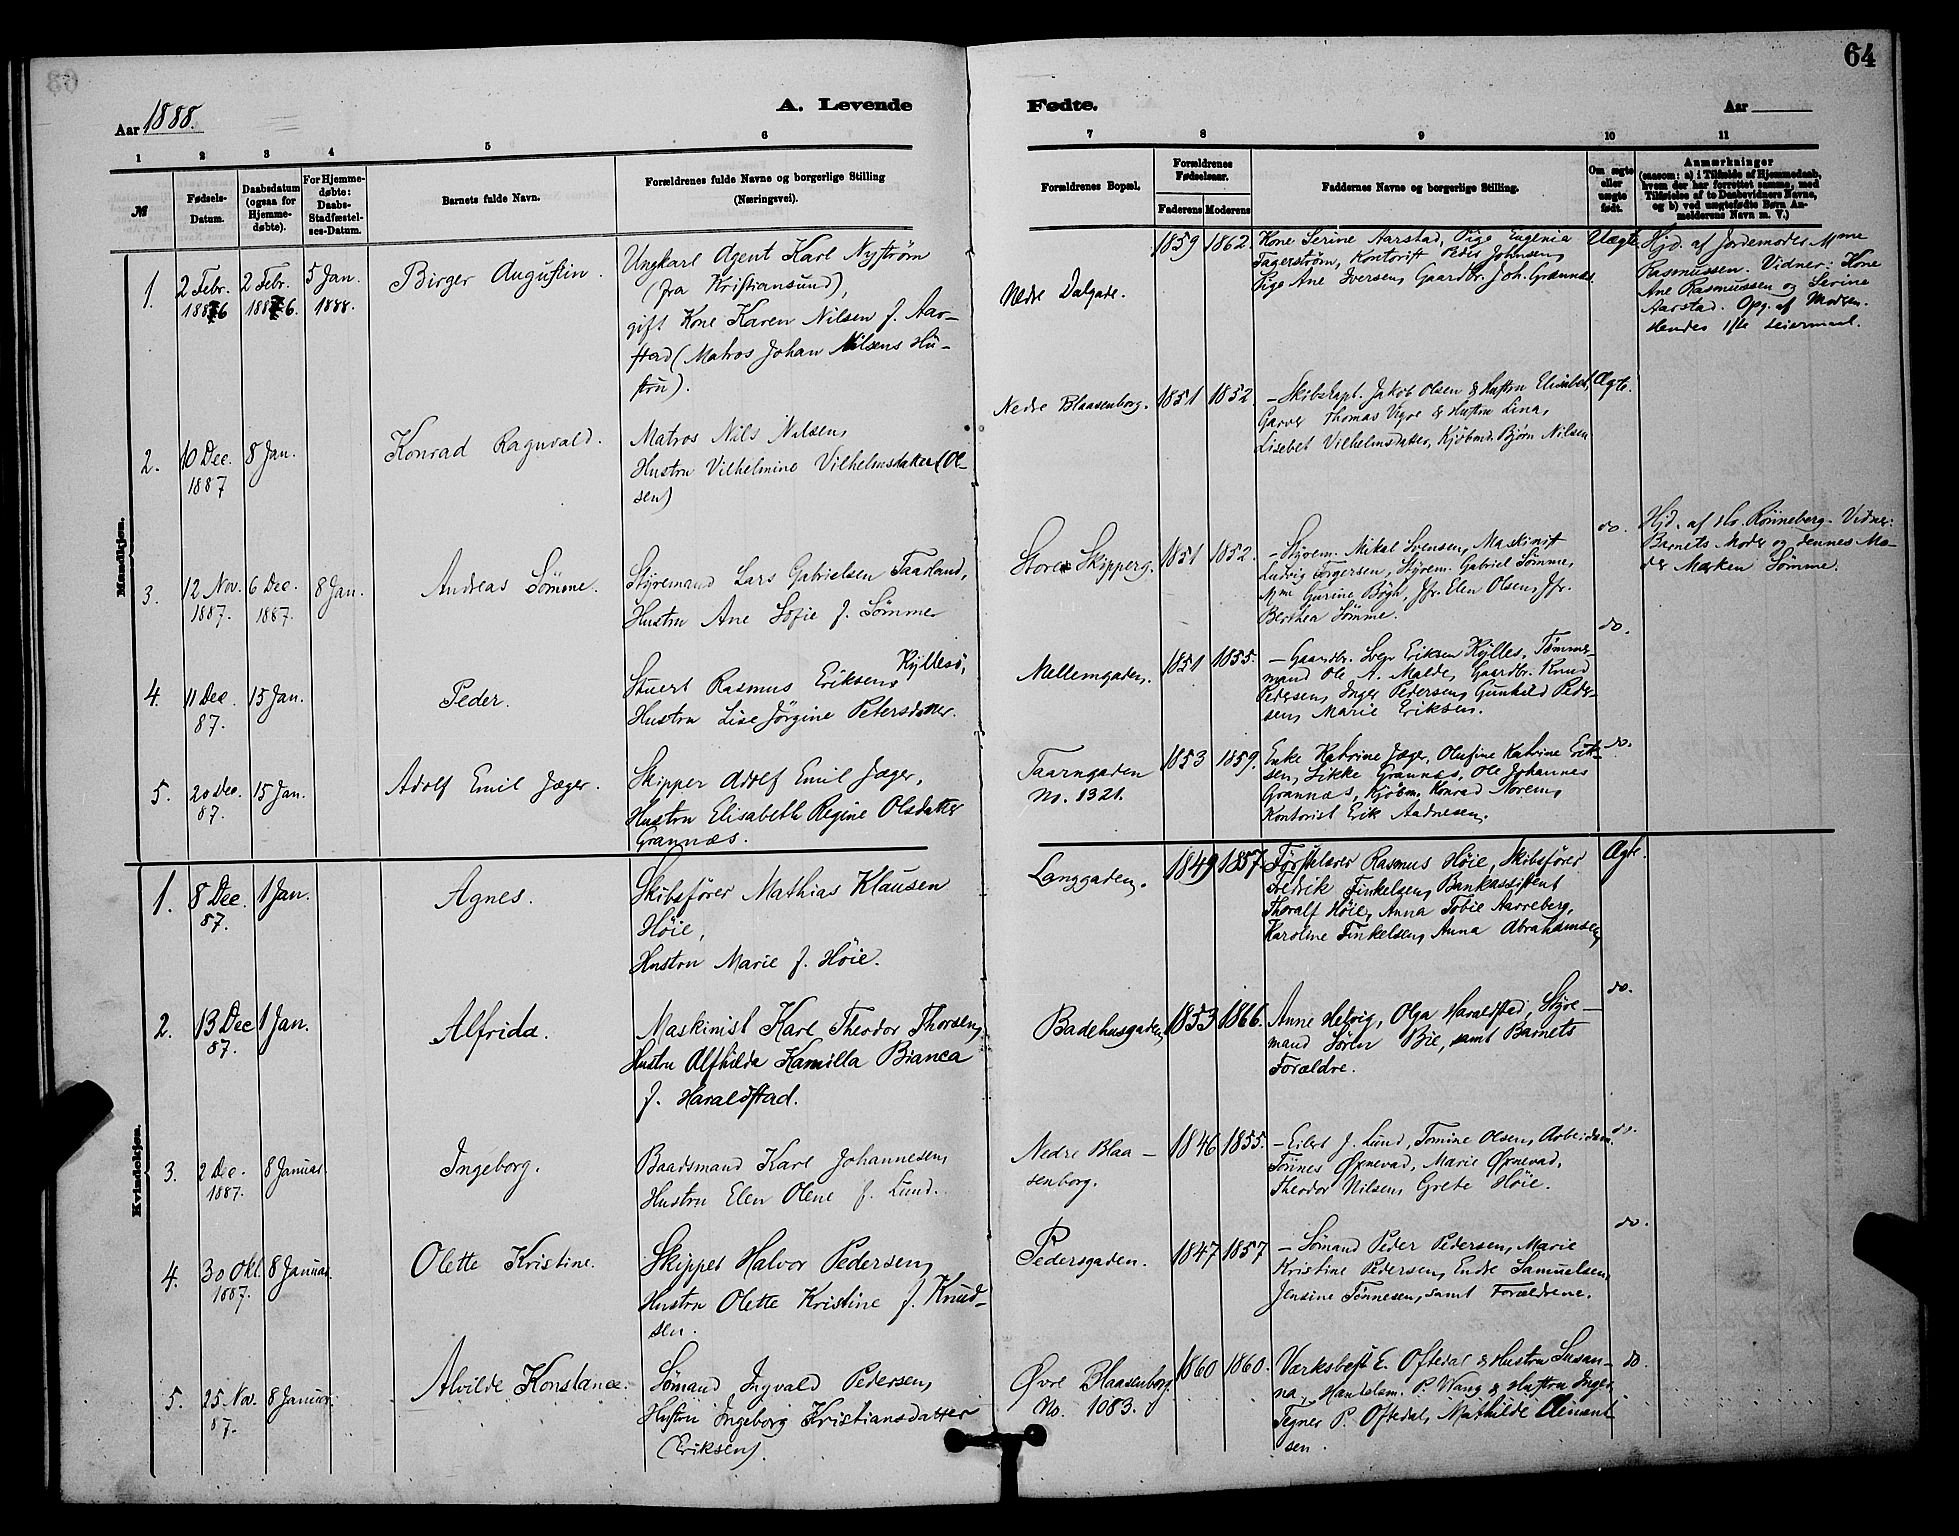 64
Aar 1888.
A. Levende
Fødte.
Aar
1 2 3 4 5 6
7 8 9 10 11
№
Fødsels-
Datum.
Daabsdatum
(ogsaa for
Hjemme-
døbte).
For Hjemme-
døbte:
Daabs-
Stadfæstel-
ses-Datum.
Barnets fulde Navn.
Forældrenes fulde Navne og borgerlige Stilling
(Næringsvei).
Forældrenes Bopæl.
Forældrenes
Fødselsaar.
Faderens
Moderens
Faddernes Navne og borgerlige Stilling.
Om ægte
eller
uægte
født.
Anmærkninger
(saasom: a) i Tilfælde af Hjemmedaab,
hvem der har forrettet samme, med
Tilføielse af to Daabsvidners Navne,
og b) ved uægtefødte Børn An-
melderens Navn m. V.)
Mandkjøn.
1.
2 Febr.
1886
2 Febr.
1886.
5 Jan.
1888.
Birger Augustin.
Ungkarl Agent Karl Nyström
(fra Kristiansund),
gift Kone Karen Nilsen f. Aar-
stad (Matros Johan Nilsens Hu-
stru).
Nedre Dalgade.
1859
1862.
Kone Serine Aarstad, Pige Eugenia
Fagerstrøm, Kontorist Peder Johnsen,
Pige Ane Iversen, Gaardbr. Joh. Grannæs
Uægte
Hjd. af Jordemoder Mme
Rasmussen. Vidner: Kone
Ane Rasmussen og Serine
Aarstad. Opg. af Moderen.
Hendes 1ste Leiermaal.
2.
10 Dec.
1887
8 Jan.
Konrad Ragnvald.
Matros Nils Nilsen,
Hustru Vilhelmine Vilhelmsdatter (Ol-
sen)
Nedre Blaasenborg.
1851
1852.
- Skibskapt. Jakob Olsen & Hustru Elisabet,
Garver Thomas Vigre & Hustru Lina,
Lisebet Vilhelmsdatter, Kjøbmd. Bjørn Nilsen
Ægte.
3.
12 Nov.
1887.
6 Dec.
1887.
8 Jan.
Andreas Sømme.
Styremand Lars Gabrielsen Taarland,
Hustru Ane Sofie f. Sømme
Store Skipperg.
1851
1852.
- Styrem. Mikal Svensen, Maskinist
Ludvig Torgersen, Styrem. Gabriel Sømme,
Mme Gurine Bøgh, Jfr. Elen Olsen, Jfr.
Berthea Sømme.
do.
Hjd. af Hr. Rønneberg. Vidner:
Barnets Moder og dennes Mo-
der Marken Sømme.
4.
11 Dec.
87.
15 Jan.
Peder.
Stuert Rasmus Eriksen Kyllesø,
Hustru Lise Jørgine Petersdatter.
Mellemgaden.
1851
1855.
- Gaardbr. Sven Eriksen Kylles, Tømmer-
mand Ole A. Malde, Gaardbr. Knud
Pedersen, Inger Pedersen, Gunhild Peder-
sen, Marie Eriksen.
do.
5.
20 Dec.
87.
15 Jan.
Adolf Emil Jæger.
Skipper Adolf Emil Jæger,
Hustru Elisabeth Regine Olsdatter
Grannæs.
Taarngaden
No. 1321.
1853
1859.
Enke Katrine Jæger, Olufine Katrine Erik-
sen, Sikke Grannæs, Ole Johannes
Grannæs, Kjøbm. Konrad Noren,
Kontorist Erik Aadnesen.
do.
Kvindekjøn.
1.
8 Dec.
87.
1 Jan.
Agnes.
Skibsfører Mathias Klausen
Høie,
Hustru Marie f. Høie.
Langgaden.
1849
1857.
Førstelærer Rasmus Høie, Skibsfører
Fredrik Finkelsen, Bankassistent
Thoralf Høie, Anna Tobie Aarreberg,
Karoline Finkelsen, Anna Abrahamsen
Ægte.
2.
13 Dec
87.
1 Jan.
Alfrida.
Maskinist Karl Theodor Thorsen,
Hustru Alfhilda Kamilla Bianca
f. Haraldstad.
Badehusgaden
1853
1866.
Anne Helvig, Olga Haraldstad, Styre-
mand Søren Bie, samt Barnets
Forældre.
do.
3.
2 Dec.
1887.
8 Januar.
Ingeborg.
Baadsmand Karl Johannesen,
Hustru Elen Olene f. Lund.
Nedre Blaa-
senborg.
1846
1855.
- Eilert J. Lund, Tomine Olsen, Arbeidsm.
Tönnes Ørnevad, Marie Ørnevad,
Theodor Nilsen, Grete Høie.
do.
4.
30 Okt.
1887.
8 Januar.
Olette Kristine.
Skipper Halvor Pedersen,
Hustru Olette Kristine f. Knud-
sen.
Pedersgaden.
1847
1857
- Sømand Peder Pedersen, Marie
Kristine Pedersen, Endre Samuelsen,
Jensine Tønnesen, samt Forældrene.
do.
5.
25 Nov.
87.
8 Januar.
Alvilde Konstance.
Sømand Ingvald Pedersen,
Hustru Ingeborg Kristiansdatter
(Eriksen).
Øvre Blaasenborg
No. 1083.
1860
1860.
Værksbest. E. Oftedal & Hustru Susan-
na, Handelsm. P. Wang & Hustru Inger,
Tegner P. Oftedal, Mathilde Clement-
sen.
do.